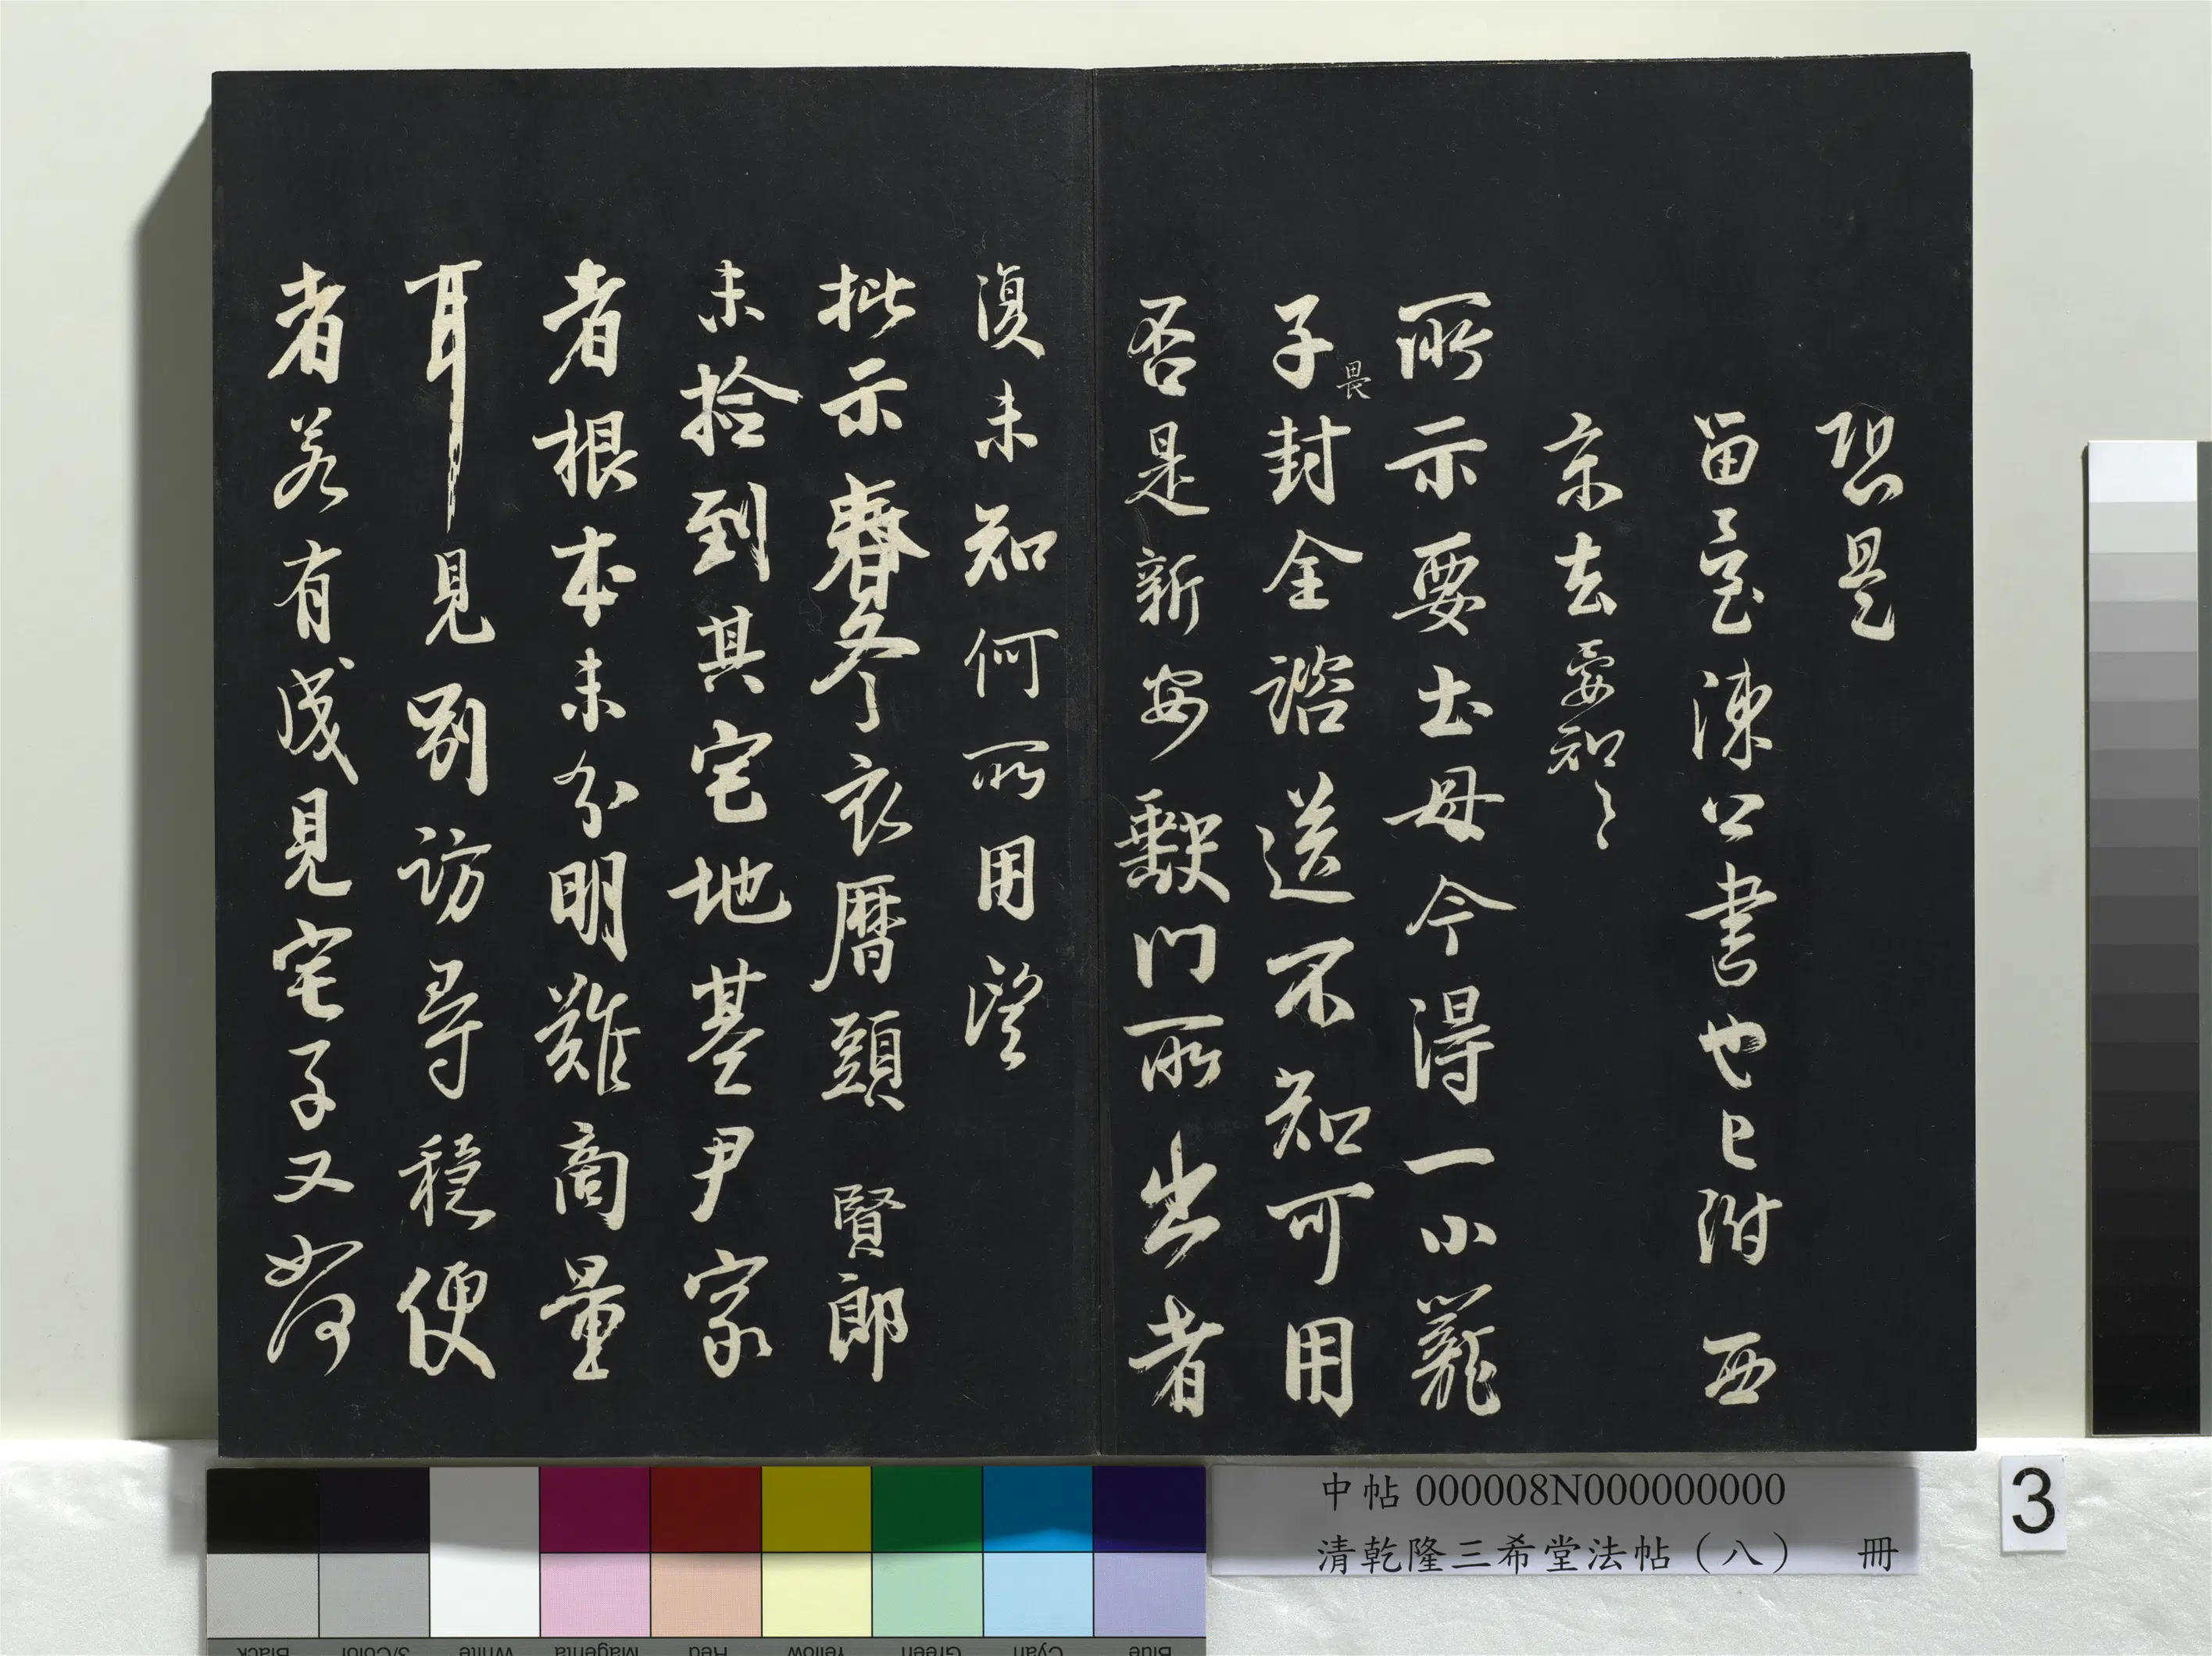 恐是
留臺陳公書也已附 西
京去要知〻
所示要土母今得一小籠
子封全諮送不知可用
畏
否是新安缺門所出者
復未知何所用望
批示春冬衣曆頭 賢郎
未拾到其宅地基尹家
者根本未分明難商量
耳見別訪尋穩便
者若有成見宅子又如何
中帖 000008N000000000
清乾隆三希堂法帖（八） 冊
3
Black
3/Color
White
Magenta
Red
Yellow
Green
Cyan
Blue